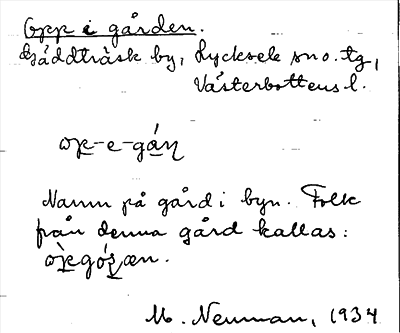 Opp i gården.
Gäddträsk by, Lycksele sno. tg,
Västerbottens l.
op-e-gáṇ
Namn på gård i byn. Folk
från denna gård kallas:
M. Neuman, 1934